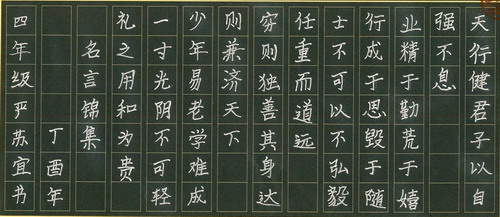 天行健君子以自
强不息
业精于勤荒于嬉
行成于思毁于随
士不可以不弘毅
任重而道远
穷则独善其身达
则兼济天下
少年易老学难成
一寸光阴不可轻
礼之用和为贵
名言锦集
丁酉年
四年级严苏宜书